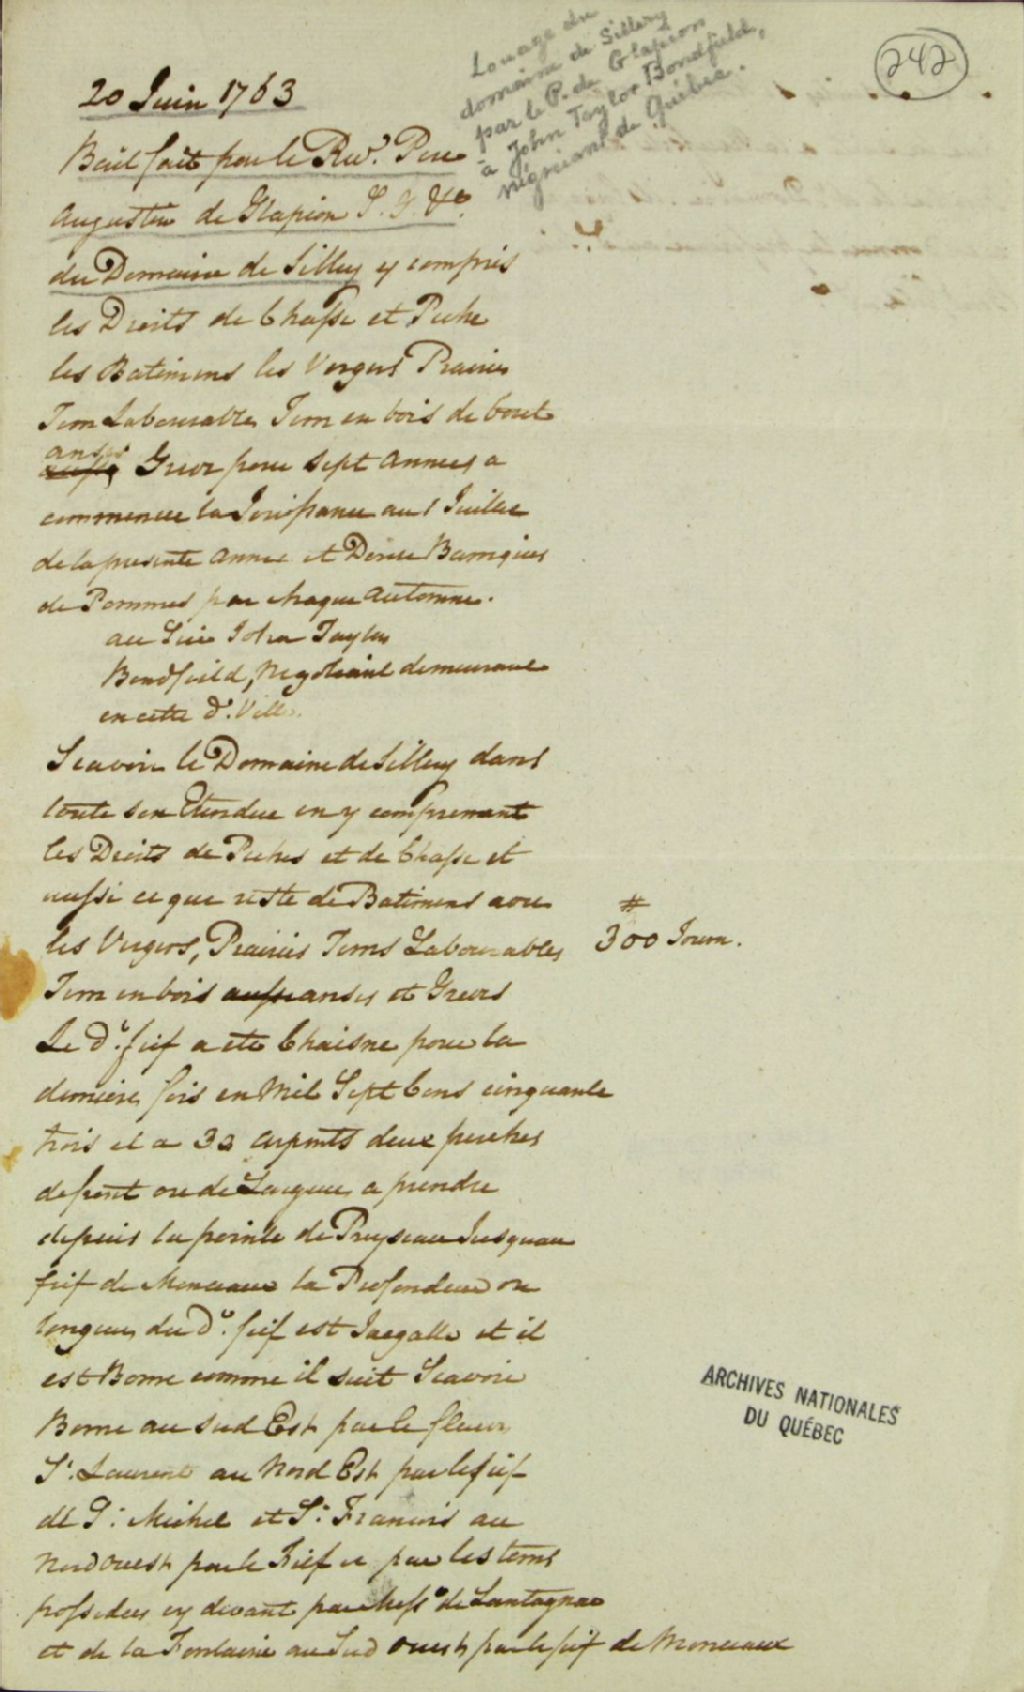 242
Louage du
domaine de Sillery
par le P. de Glapion
à John Taylor Bondfield,
négociant de Québec.
20 Juin 1763
Bail fait par le Rev.d Pere
Augustin de Glapion S. J. &c.
du Domaine de Sillery y compris
les Droits de Chasse et Peche
les Batimens les Vergers Prairies
Terres Labourables Terres en bois de bout
anses Greves pour Sept Annees a
commencer la Jouissance au 1 Juillet
de la presente Annee et Barriques
de Pommes par chaque Automne.
au Sieur John Taylor
Bondfield, Negotiant demeurant
en cette d. Ville.
Scavoir le Domaine de Sillery dans
toute son Etendue en y comprenant
les Droits de Peches et de Chasse et
aussi ce que reste de Batimens avec
les Vergers, Prairies Terres Labourables
# 300 Tourn.
Terres en bois ausse anses et Greves
Le d.t fief a ete Chaisne pour la
derniere fois en Mil Sept Cens cinquante
trois et a 32 arpents deux perches
de front ou de Largeur a prendre
depuis la pointe de Puyseau Jusquau
fief de Monceaux la Profondeur ou
longueur du d.t fief est Inegalle et il
est Borne comme il suit Scavoir
Borne au Sud Est par le fleuve
St. Laurent au Nord Est par le fief
de St. Michel et St. Francois au
Nord Ouest par le Fief et par les terres
possedees cy devant par Mess.rs de Lantagnac
et de la Fontaine au Sud Ouest par le fief de Monceaux
ARCHIVES NATIONALES
DU QUÉBEC